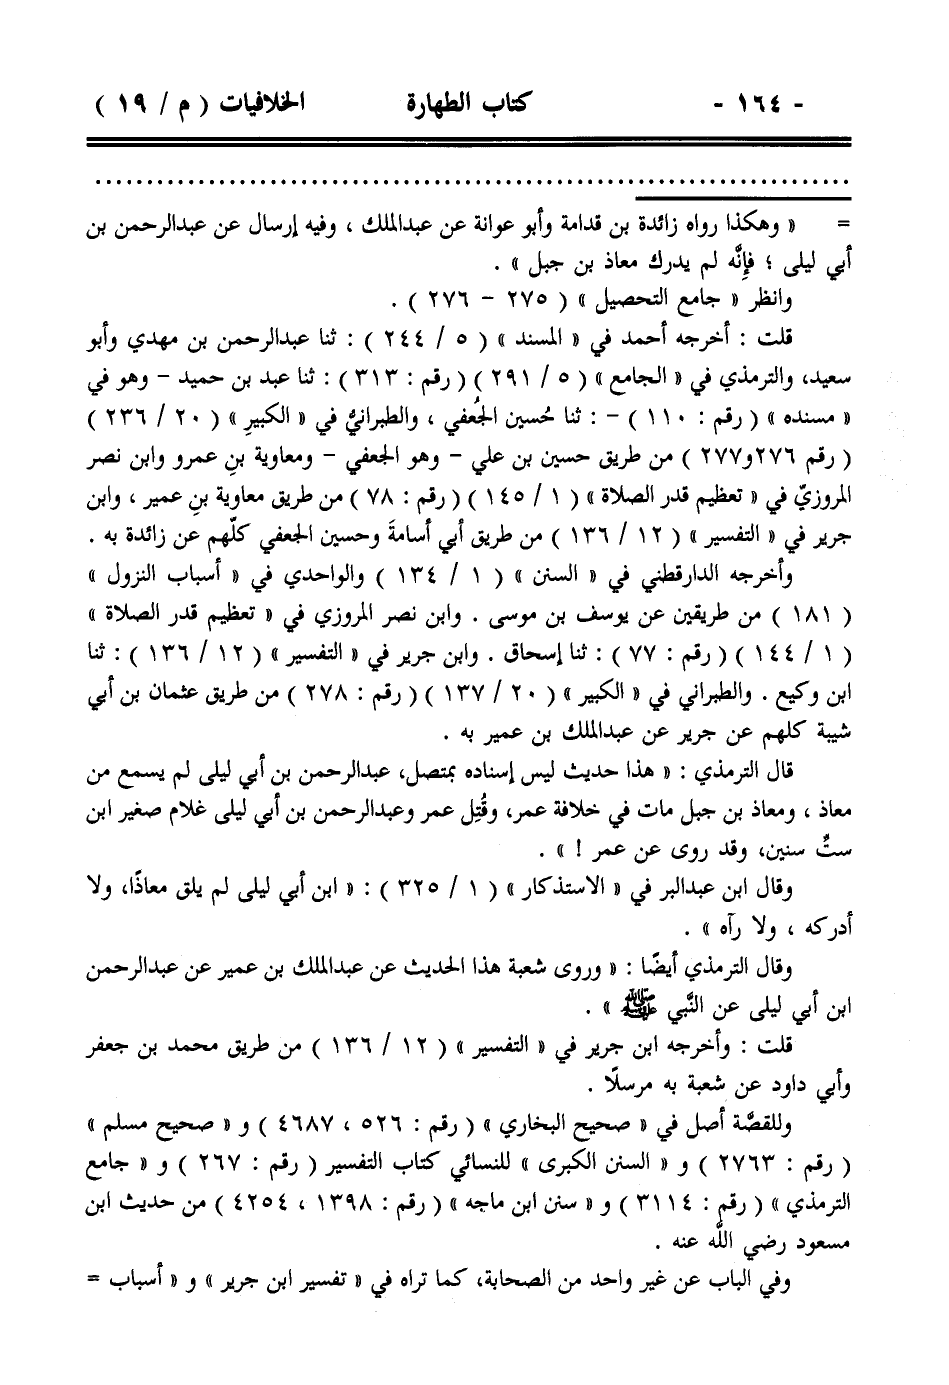 - ١٦٤ - كتاب الطهارة الخلافيات ( م / ١٩ )
................................................................
= « وهكذا رواه زائدة بن قدامة وأبو عوانة عن عبدالملك ، وفيه إرسال عن عبدالرحمن بن
أبي ليلى ؛ فإنَّه لم يدرك معاذ بن جبل » .
وانظر « جامع التحصيل » ( ٢٧٥ - ٢٧٦ ) .
قلت : أخرجه أحمد في « المسند » ( ٥ / ٢٤٤ ) : ثنا عبدالرحمن بن مهدي وأبو
سعيد، والترمذي في « الجامع » ( ٥ / ٢٩١ ) ( رقم : ٣١٣ ) : ثنا عبد بن حميد - وهو في
« مسنده » ( رقم : ١١٠ ) - : ثنا حُسين الجُعفي ، والطبرانيُّ في « الكبيرِ » ( ٢٠ / ٢٣٦ )
( رقم ٢٧٦و٢٧٧ ) من طريق حسين بن علي - وهو الجعفي - ومعاوية بنِ عمرو وابن نصر
المروزيّ في « تعظيم قدر الصلاة » ( ١ / ١٤٥ ) ( رقم : ٧٨ ) من طريق معاوية بنِ عمير ، وابن
جرير في « التفسير » ( ١٢ / ١٣٦ ) من طريق أبي أسامةَ وحسين الجعفي كلّهم عن زائدة به .
وأخرجه الدارقطني في « السنن » ( ١ / ١٣٤ ) والواحدي في « أسباب النزول »
( ١٨١ ) من طريقين عن يوسف بن موسى . وابن نصر المروزي في « تعظيم قدر الصلاة »
( ١ / ١٤٤ ) ( رقم : ٧٧ ) : ثنا إسحاق . وابن جرير في « التفسير » ( ١٢ / ١٣٦ ) : ثنا
ابن وكيع . والطبراني في « الكبير » ( ٢٠ / ١٣٧ ) ( رقم : ٢٧٨ ) من طريق عثمان بن أبي
شيبة كلهم عن جرير عن عبدالملك بن عمير به .
قال الترمذي : « هذا حديث ليس إسناده بمتصل، عبدالرحمن بن أبي ليلى لم يسمع من
معاذ ، ومعاذ بن جبل مات في خلافة عمر، وقُتِل عمر وعبدالرحمن بن أبي ليلى غلام صغير ابن
ستٌ سنين، وقد روى عن عمر ! » .
وقال ابن عبدالبر في « الاستذكار » ( ١ / ٣٢٥ ) : « ابن أبي ليلى لم يلق معاذًا، ولا
أدركه ، ولا رآه » .
وقال الترمذي أيضًا : « وروى شعبة هذا الحديث عن عبدالملك بن عمير عن عبدالرحمن
ابن أبي ليلى عن النَّبي ﷺ » .
قلت : وأخرجه ابن جرير في « التفسير » ( ١٢ / ١٣٦ ) من طريق محمد بن جعفر
وأبي داود عن شعبة به مرسلًا .
وللقصَّة أصل في « صحيح البخاري » ( رقم : ٥٢٦ ، ٤٦٨٧ ) و « صحيح مسلم »
( رقم : ٢٧٦٣ ) و « السنن الكبرى » للنسائي كتاب التفسير ( رقم : ٢٦٧ ) و « جامع
الترمذي » ( رقم : ٣١١٤ ) و « سنن ابن ماجه » ( رقم : ١٣٩٨ ، ٤٢٥٤ ) من حديث ابن
مسعود رضي اللَّه عنه .
وفي الباب عن غير واحد من الصحابة، كما تراه في « تفسير ابن جرير » و « أسباب =